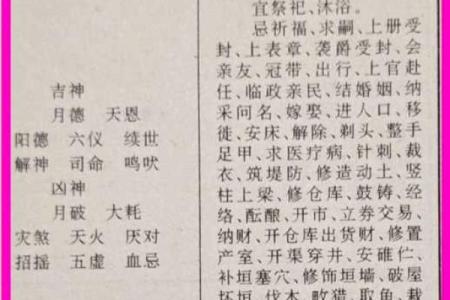 吉神
月德 天恩
阳德 六仪 续世
解神 司命 鸣吠
凶神
月破 大耗
灾煞 天火 厌对
招摇 五虚 血忌
宜祭祀、沐浴。
忌祈福、求嗣、上册受
封、上表章、袭爵受封、会
亲友、冠带、出行、上官赴
任、临政亲民、结婚姻、纳
采问名、嫁娶、进人口、移
徙、安床、解除、剃头、整手
足甲、求医疗病、针刺、裁
衣、筑堤防、修造动土、竖
柱上梁、修仓库、鼓铸、经
络、酝酿、开市、立券交易、
纳财、开仓库出货财、修置
产室、开渠穿井、安碓仁、
补垣塞穴、修饰垣墙、破屋
坏垣、伐木、畋猎、取鱼、栽